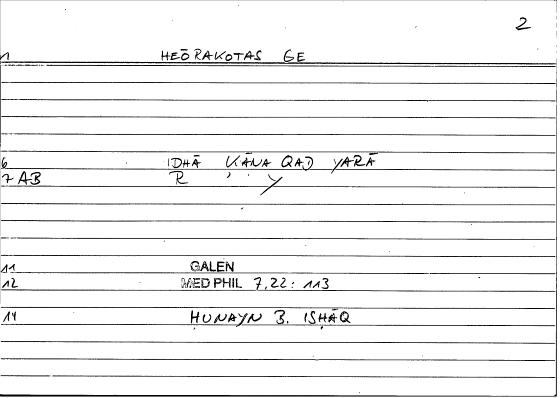 2
1 HEŌRAKOTAS GE
6 IDHĀ KĀNA QAD YARĀ
7 AB R ' Y
11 GALEN
12 MED PHIL 7,22: 113
14 ḤUNAYN B. ISḤĀQ